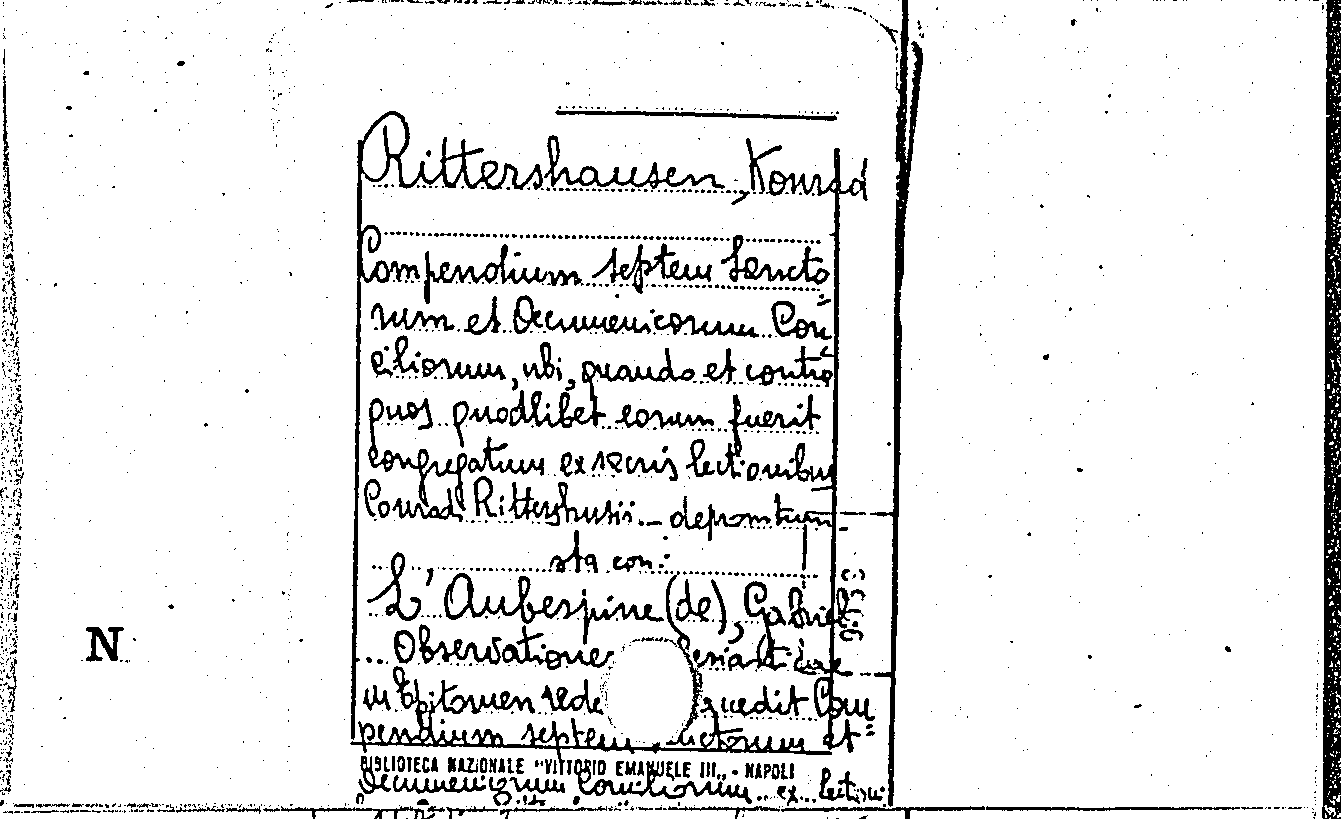 Rittershausen, Konrad
Compendium septem Sancto=
rum et Oecumenicorum Con=
ciliorum, ubi, quando et contra
quos quodlibet eorum fuerit
congregatum ex sacris lectionibus
Conradi Rittershusii... depromtum.
sta con:
L'Aubespine (de), Gabriel
... Observationes
in Epitomen Com=
pendium septem et
BIBLIOTECA NAZIONALE "VITTORIO EMANUELE III" - NAPOLI
Oecumenicorum Conciliorum ex lectioni
N